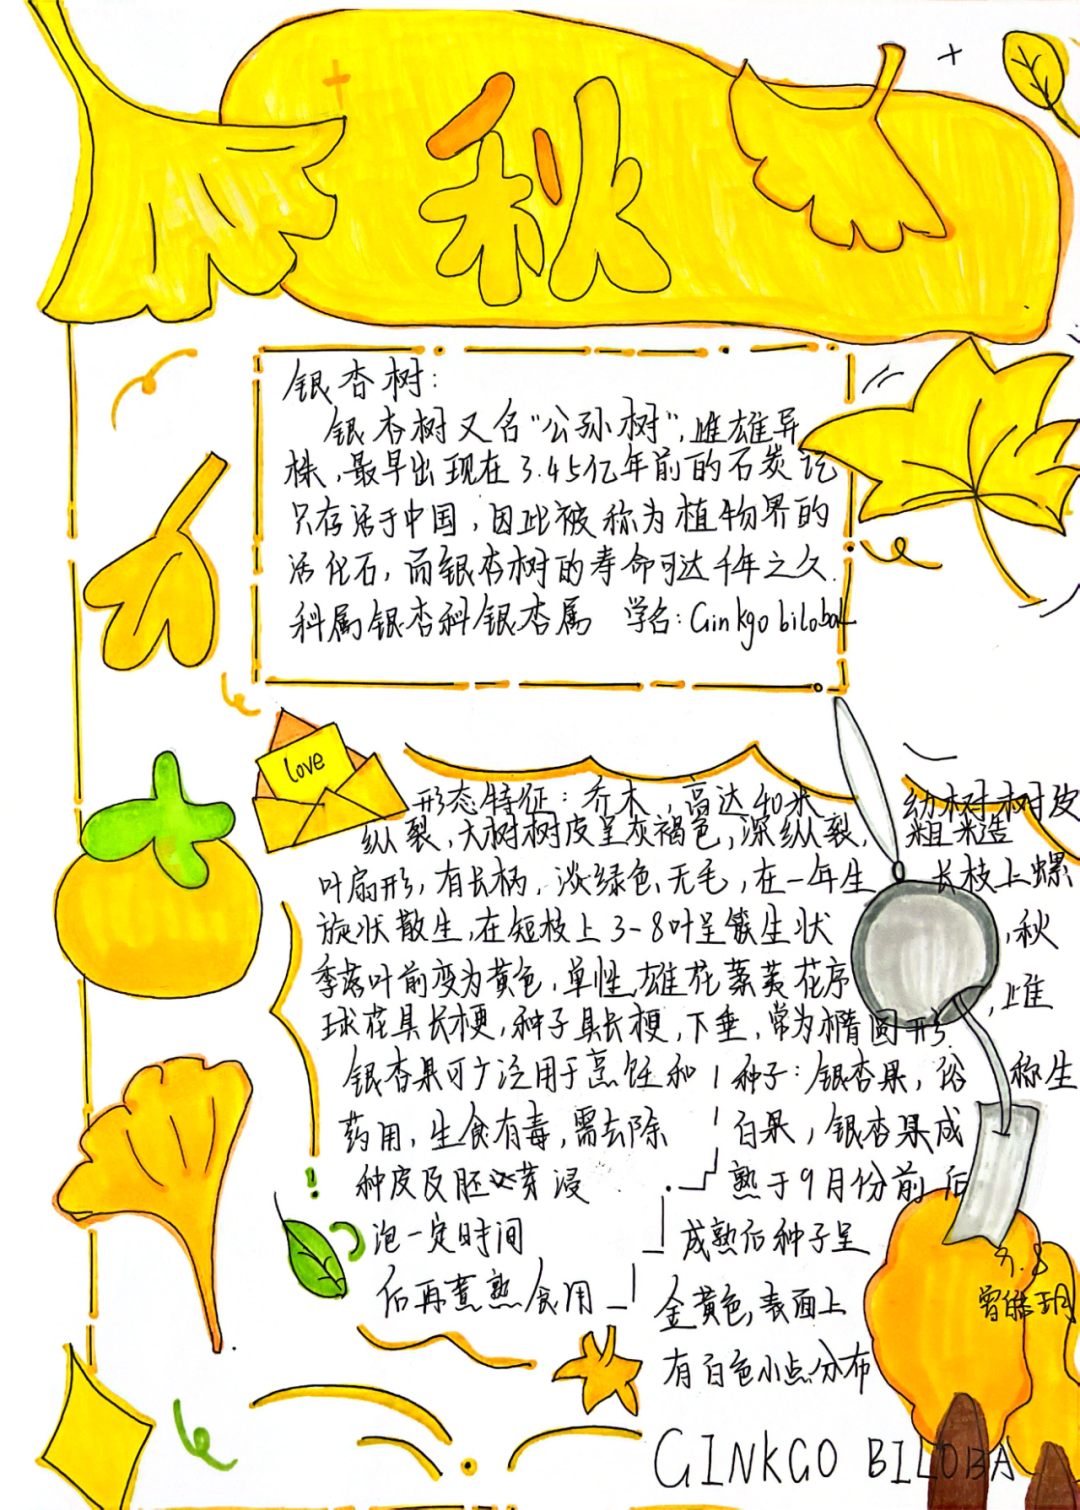 秋
银杏树：
银杏树又名“公孙树”，雌雄异
株，最早出现在3.45亿年前的石炭纪
只存活于中国，因此被称为植物界的
活化石，而银杏树的寿命可达千年之久.
科属银杏科银杏属 学名：Ginkgo biloba L
love
形态特征：乔木，高达40米 幼树树皮
纵裂，大树树皮呈灰褐色，深纵裂，粗糙
叶扇形，有长柄，淡绿色，无毛，在一年生 长枝上螺
旋状散生，在短枝上3-8叶呈簇生状，秋
季落叶前变为黄色，单性，雄花葇荑花序，雌
球花具长梗，种子具长梗，下垂，常为椭圆形.
银杏果可广泛用于烹饪和
药用，生食有毒，需去除
种皮及胚芽浸
泡一定时间
后再煮熟食用
种子：银杏果，俗称生
白果，银杏果成
熟于9月份前后
成熟后种子呈
金黄色，表面上
有白色小点分布
GINKGO BILOBA